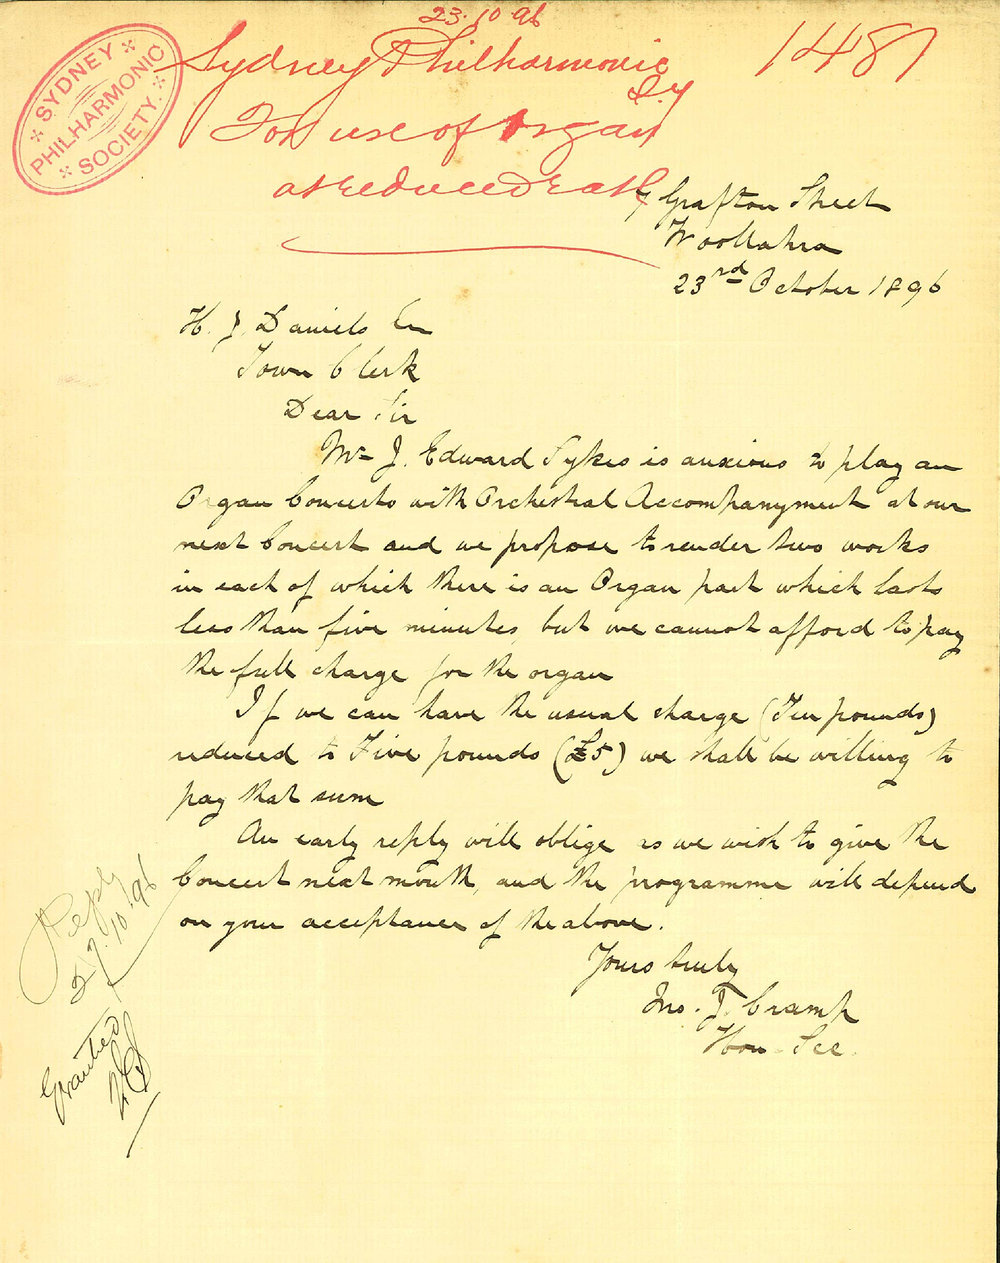 23.10.96
SYDNEY
PHILHARMONIC
SOCIETY.
Sydney Philharmonic
Sy
1481
For use of Organ
at reduced Rate
7 Grafton Street
Woollahra
23rd October 1896
H. J. Daniels Esq
Town Clerk
Dear Sir
Mr J. Edward Sykes is anxious to play an
Organ Concerto with Orchestral Accompanyment at our
next Concert and we propose to render two works
in each of which there is an Organ part which lasts
less than five minutes, but we cannot afford to pay
the full charge for the organ
If we can have the usual charge (Ten pounds)
reduced to Five pounds (£5) we shall be willing to
pay that sum
An early reply will oblige as we wish to give the
Concert next month, and the programme will depend
on your acceptance of the above.
Yours truly
Jno. J. Cramp
Hon. Sec.
Reply
27.10.96
Granted